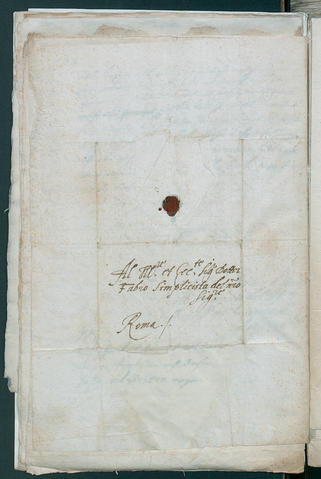 Al Ill.re et Ecc.te Sig.r Dottor
Fabio Simplicista del N.ro
Sig.re
Roma ./.